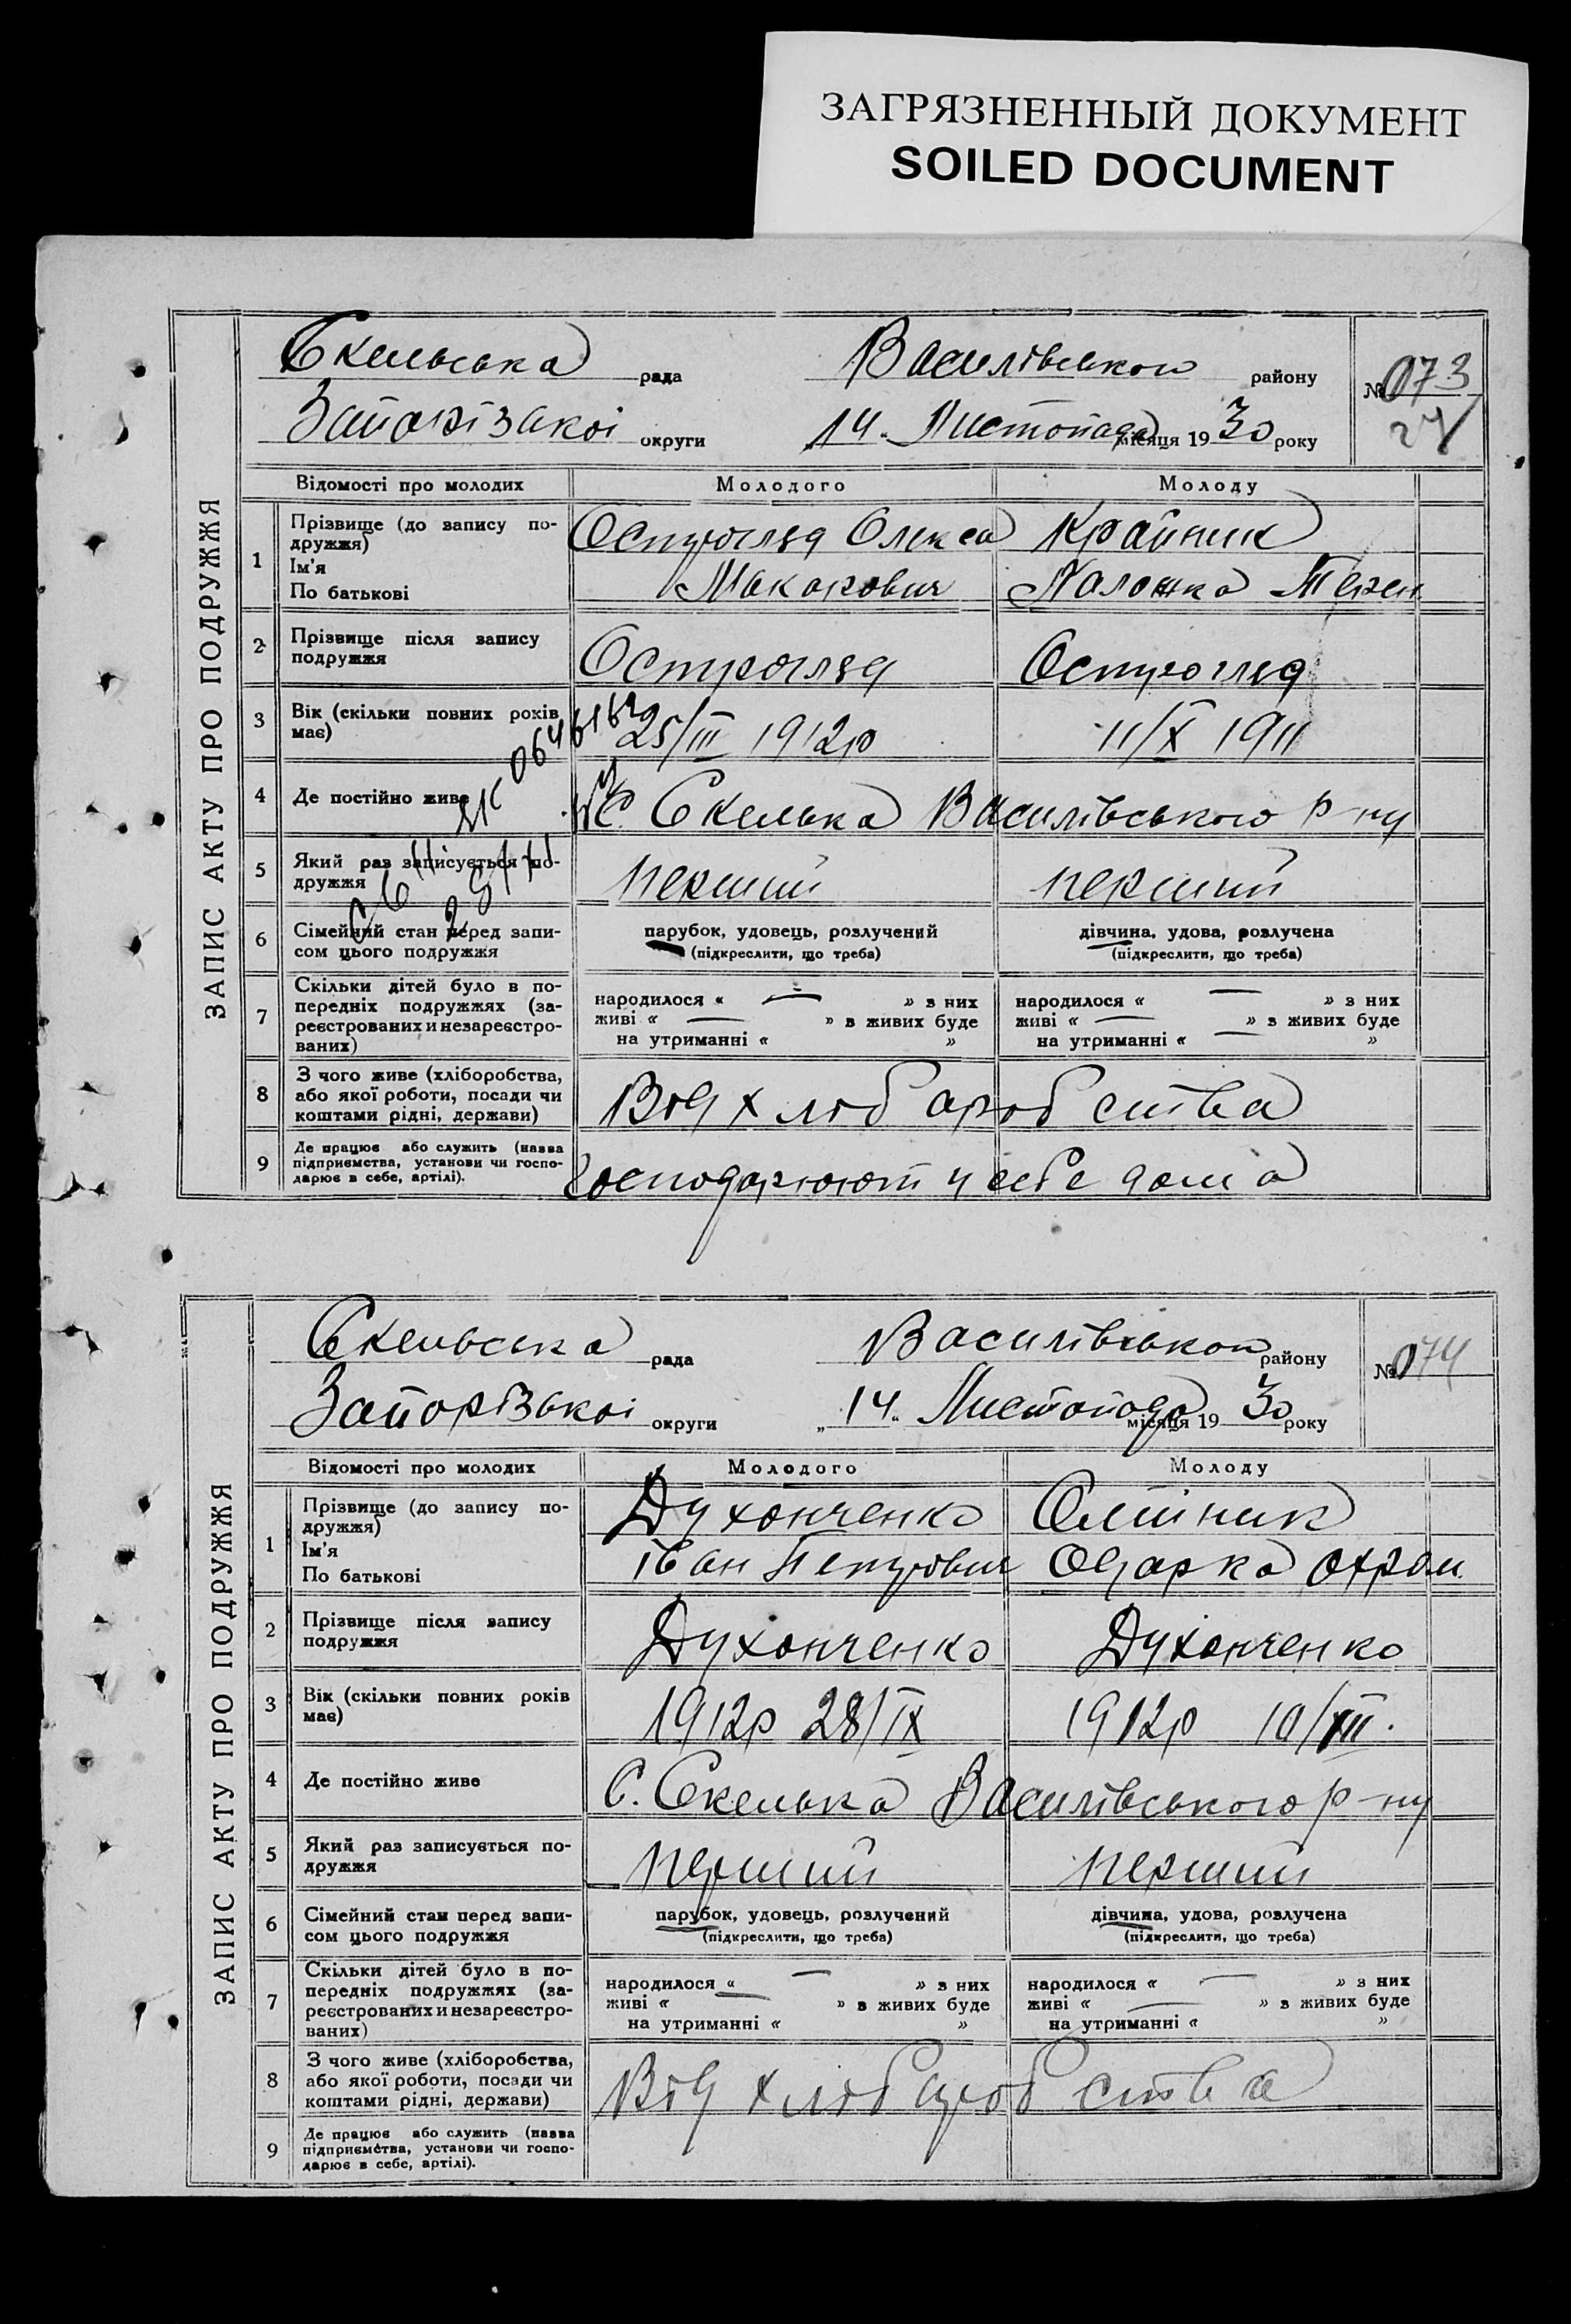 ЗАГРЯЗНЕННЫЙ ДОКУМЕНТ
SOILED DOCUMENT
ЗАПИС АКТУ ПРО ПОДРУЖЖЯ
Скельська рада Василівського району № 073
Запорізької округи 14 Листопада місяця 1930 року 27
Відомості про молодих Молодого Молоду
1 Прізвище (до запису по-
дружжя)
Ім'я
По батькові
Остроогляд Олекса Крайник
Макарович Палажка Терен
2 Прізвище після запису
подружжя
Остроогляд Остроогляд
3 Вік (скільки повних років
має)
25/III 1912р 11/X 1911
4 Де постійно живе
С. Скелька Василівського р-ну
5 Який раз записується по-
дружжя
перший перший
6 Сімейний стан перед запи-
сом цього подружжя
парубок, удовець, розлучений
(підкреслити, що треба)
дівчина, удова, розлучена
(підкреслити, що треба)
7 Скільки дітей було в по-
передніх подружжях (за-
реєстрованих и незареєстро-
ваних)
народилося « — » з них
живі « — » в живих буде
на утриманні « »
народилося « — » з них
живі « — » з живих буде
на утриманні « — »
8 З чого живе (хліборобства,
або якої роботи, посади чи
коштами рідні, держави)
Від хліборобства
9 Де працює або служить (назва
підприємства, установи чи госпо-
дарює в себе, артілі).
Господарюют у себе дома
ЗАПИС АКТУ ПРО ПОДРУЖЖЯ
Скельська рада Василівської району № 074
Запорізької округи „ 14 “ Листопада місяця 1930 року
Відомості про молодих Молодого Молоду
1 Прізвище (до запису по-
дружжя)
Ім'я
По батькові
Духонченко Олійник
Іван Петрович Одарка Охрам.
2 Прізвище після запису
подружжя
Духонченко Духонченко
3 Вік (скільки повних років
має)
1912р 28/IX 1912р 10/XII.
4 Де постійно живе
С. Скелька Василівського р-ну
5 Який раз записується по-
дружжя
перший перший
6 Сімейний стан перед запи-
сом цього подружжя
парубок, удовець, розлучений
(підкреслити, що треба)
дівчина, удова, розлучена
(підкреслити, що треба)
7 Скільки дітей було в по-
передніх подружжях (за-
реєстрованих и незареєстро-
ваних)
народилося « — » з них
живі « — » в живих буде
на утриманні « »
народилося « — » з них
живі « — » з живих буде
на утриманні « »
8 З чого живе (хліборобства,
або якої роботи, посади чи
коштами рідні, держави)
Від хліборобства
9 Де працює або служить (назва
підприємства, установи чи госпо-
дарює в себе, артілі).